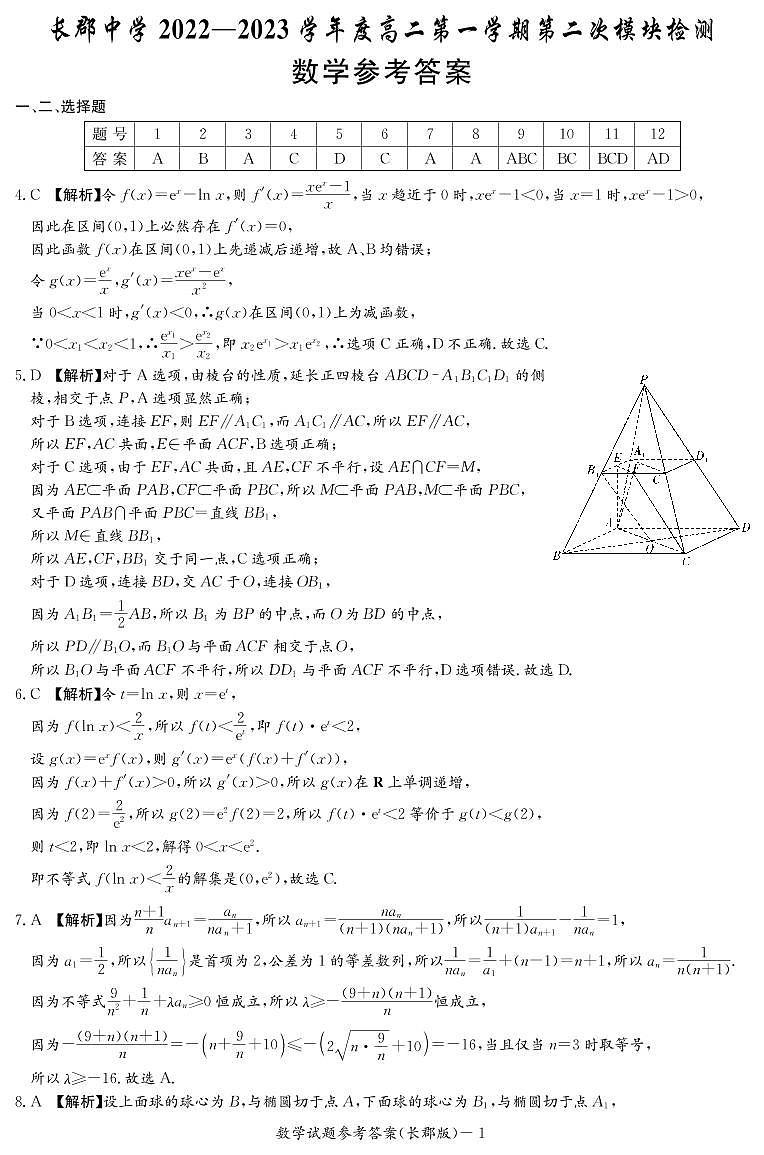 长郡中学 2022—2023 学年度高二第一学期第二次模块检测
数学参考答案
一、二、选择题
题号 1 2 3 4 5 6 7 8 9 10 11 12
答案 A B A C D C A A ABC BC BCD AD
4. C 【解析】令 f(x)=eˣ−ln x,则 f′(x)=(xeˣ−1)/x,当 x 趋近于 0 时,xeˣ−1<0,当 x=1 时,xeˣ−1>0,
因此在区间(0,1)上必然存在 f′(x)=0,
因此函数 f(x)在区间(0,1)上先递减后递增,故 A、B 均错误;
令 g(x)=eˣ/x,g′(x)=(xeˣ−eˣ)/x²,
当 0<x<1 时,g′(x)<0,∴g(x)在区间(0,1)上为减函数,
∵0<x₁<x₂<1,∴e^x₁/x₁>e^x₂/x₂,即 x₂e^x₁>x₁e^x₂,∴选项 C 正确,D 不正确. 故选 C.
5. D 【解析】对于 A 选项,由棱台的性质,延长正四棱台 ABCD-A₁B₁C₁D₁ 的侧
棱,相交于点 P,A 选项显然正确;
对于 B 选项,连接 EF,则 EF∥A₁C₁,而 A₁C₁∥AC,所以 EF∥AC,
所以 EF,AC 共面,E∈平面 ACF,B 选项正确;
对于 C 选项,由于 EF,AC 共面,且 AE,CF 不平行,设 AE∩CF=M,
因为 AE⊂平面 PAB,CF⊂平面 PBC,所以 M⊂平面 PAB,M⊂平面 PBC,
又平面 PAB∩平面 PBC=直线 BB₁,
所以 M∈直线 BB₁,
所以 AE,CF,BB₁ 交于同一点,C 选项正确;
对于 D 选项,连接 BD,交 AC 于 O,连接 OB₁,
因为 A₁B₁=1/2AB,所以 B₁ 为 BP 的中点,而 O 为 BD 的中点,
所以 PD∥B₁O,而 B₁O 与平面 ACF 相交于点 O,
所以 B₁O 与平面 ACF 不平行,所以 DD₁ 与平面 ACF 不平行,D 选项错误. 故选 D.
P
E A₁ D₁
B₁ F C₁
A D
B O C
6. C 【解析】令 t=ln x,则 x=eᵗ,
因为 f(ln x)<2/x,所以 f(t)<2/eᵗ,即 f(t)·eᵗ<2,
设 g(x)=eˣf(x),则 g′(x)=eˣ(f(x)+f′(x)),
因为 f(x)+f′(x)>0,所以 g′(x)>0,所以 g(x)在 R 上单调递增,
因为 f(2)=2/e²,所以 g(2)=e²f(2)=2,所以 f(t)·eᵗ<2 等价于 g(t)<g(2),
则 t<2,即 ln x<2,解得 0<x<e².
即不等式 f(ln x)<2/x 的解集是(0,e²),故选 C.
7. A 【解析】因为(n+1)/n aₙ₊₁=aₙ/(naₙ+1),所以 aₙ₊₁=naₙ/((n+1)(naₙ+1)),所以 1/((n+1)aₙ₊₁)−1/(naₙ)=1,
因为 a₁=1/2,所以{1/(naₙ)}是首项为 2,公差为 1 的等差数列,所以 1/(naₙ)=1/a₁+(n−1)=n+1,所以 aₙ=1/(n(n+1)).
因为不等式 9/n²+1/n+λaₙ⩾0 恒成立,所以 λ⩾−(9+n)(n+1)/n 恒成立,
因为−(9+n)(n+1)/n=−(n+9/n+10)⩽−(2√(n·9/n)+10)=−16,当且仅当 n=3 时取等号,
所以 λ⩾−16. 故选 A.
8. A 【解析】设上面球的球心为 B,与椭圆切于点 A,下面球的球心为 B₁,与椭圆切于点 A₁,
数学试题参考答案(长郡版)－1